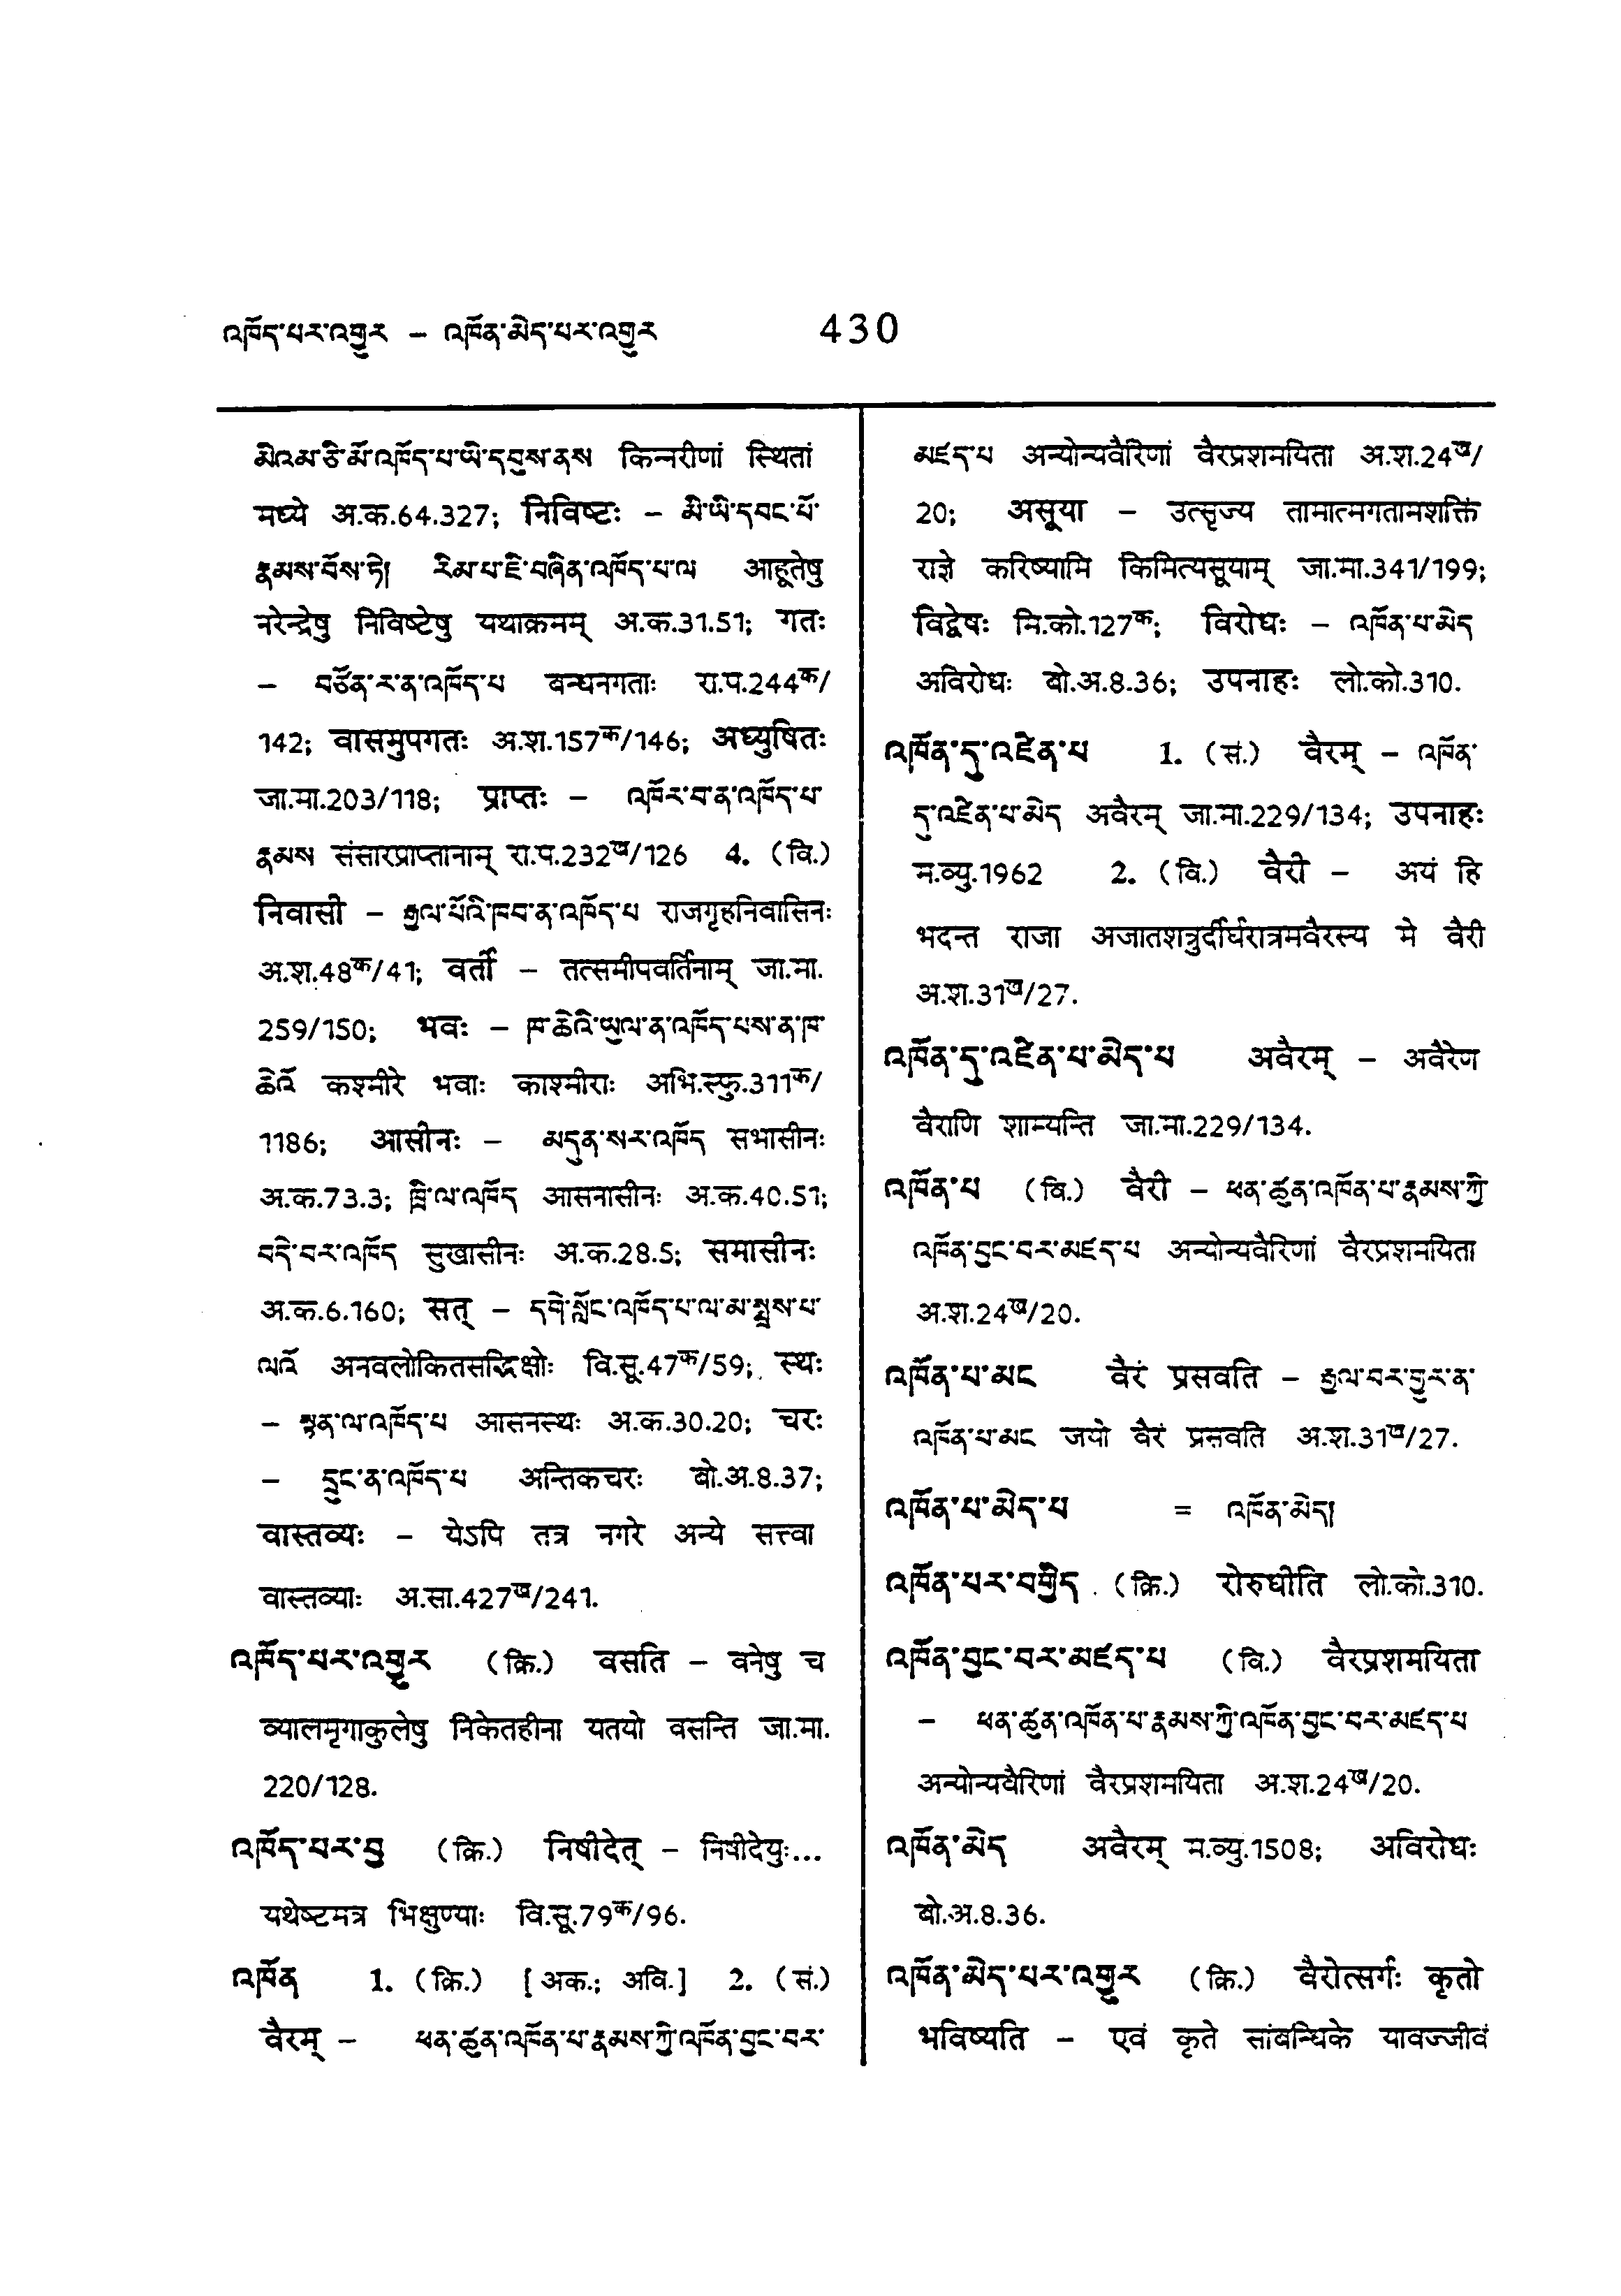 འཁོད་པར་འགྱུར – འཁོན་མེད་པར་འགྱུར 430
མིའམ་ཅི་མོ་འཁོད་པ་ཡི་དབུས་ནས किन्नरीणां स्थितां
मध्ये अ.क.64.327; निविष्टः – མི་ཡི་དབང་པོ་
རྣམས་བོས་ཏེ། རིམ་པ་ཇི་བཞིན་འཁོད་པ་ལ आहूतेषु
नरेन्द्रेषु निविष्टेषु यथाक्रमम् अ.क.31.51; गतः
– བཙོན་ར་ན་འཁོད་པ बन्धनगताः रा.प.244क/
142; वासमुपगतः अ.श.157क/146; अध्युषितः
जा.मा.203/118; प्राप्तः – འཁོར་བ་ན་འཁོད་པ་
རྣམས संसारप्राप्तानाम् रा.प.232ख/126 4. (वि.)
निवासी – རྒྱལ་པོའི་ཁབ་ན་འཁོད་པ राजगृहनिवासिनः
अ.श.48क/41; वर्ती – तत्समीपवर्तिनाम् जा.मा.
259/150; भवः – ཁ་ཆེའི་ཡུལ་ན་འཁོད་པས་ན་ཁ་
ཆེའོ कश्मीरे भवाः काश्मीराः अभि.स्फु.311क/
1186; आसीनः – མདུན་སར་འཁོད सभासीनः
अ.क.73.3; ཁྲི་ལ་འཁོད आसनासीनः अ.क.40.51;
བདེ་བར་འཁོད सुखासीनः अ.क.28.5; समासीनः
अ.क.6.160; सत् – དགེ་སློང་འཁོད་པ་ལ་མ་སྨྲས་པ་
ལའོ अनवलोकितसद्भिक्षोः वि.सू.47क/59; स्थः
– སྟན་ལ་འཁོད་པ आसनस्थः अ.क.30.20; चरः
– དྲུང་ན་འཁོད་པ अन्तिकचरः बो.अ.8.37;
वास्तव्यः – येऽपि तत्र नगरे अन्ये सत्त्वा
वास्तव्याः अ.सा.427ख/241.
འཁོད་པར་འགྱུར (क्रि.) वसति – वनेषु च
व्यालमृगाकुलेषु निकेतहीना यतयो वसन्ति जा.मा.
220/128.
འཁོད་པར་བྱ (क्रि.) निषीदेत् – निषीदेयुः...
यथेष्टमत्र भिक्षुण्याः वि.सू.79क/96.
འཁོན 1. (क्रि.) [अक.; अवि.] 2. (सं.)
वैरम् – ཕན་ཚུན་འཁོན་པ་རྣམས་ཀྱི་འཁོན་བྱང་བར་
མཛད་པ अन्योन्यवैरिणां वैरप्रशमयिता अ.श.24ख/
20; असूया – उत्सृज्य तामात्मगतामशक्तिं
राज्ञे करिष्यामि किमित्यसूयाम् जा.मा.341/199;
विद्वेषः मि.को.127क; विरोधः – འཁོན་པ་མེད
अविरोधः बो.अ.8.36; उपनाहः लो.को.310.
འཁོན་དུ་འཛིན་པ 1. (सं.) वैरम् – འཁོན་
དུ་འཛིན་པ་མེད अवैरम् जा.मा.229/134; उपनाहः
म.व्यु.1962 2. (वि.) वैरी – अयं हि
भदन्त राजा अजातशत्रुर्दीर्घरात्रमवैरस्य मे वैरी
अ.श.31ख/27.
འཁོན་དུ་འཛིན་པ་མེད་པ अवैरम् – अवैरेण
वैराणि शाम्यन्ति जा.मा.229/134.
འཁོན་པ (वि.) वैरी – ཕན་ཚུན་འཁོན་པ་རྣམས་ཀྱི
འཁོན་བྱང་བར་མཛད་པ अन्योन्यवैरिणां वैरप्रशमयिता
अ.श.24ख/20.
འཁོན་པ་མང वैरं प्रसवति – རྒྱལ་བར་གྱུར་ན་
འཁོན་པ་མང जयो वैरं प्रसवति अ.श.31ख/27.
འཁོན་པ་མེད་པ = འཁོན་མེད།
འཁོན་པར་བགྱིད (क्रि.) रोरुधीति लो.को.310.
འཁོན་བྱང་བར་མཛད་པ (वि.) वैरप्रशमयिता
– ཕན་ཚུན་འཁོན་པ་རྣམས་ཀྱི་འཁོན་བྱང་བར་མཛད་པ
अन्योन्यवैरिणां वैरप्रशमयिता अ.श.24ख/20.
འཁོན་མེད अवैरम् म.व्यु.1508; अविरोधः
बो.अ.8.36.
འཁོན་མེད་པར་འགྱུར (क्रि.) वैरोत्सर्गः कृतो
भविष्यति – एवं कृते सांबन्धिके यावज्जीवं